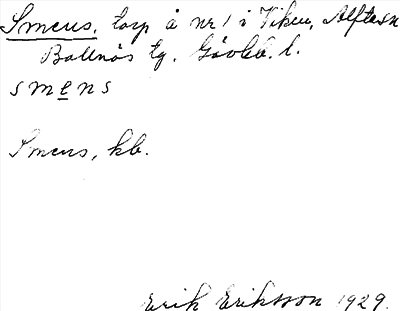 Smens, torp å nr 1 i Viken, Alfta sn
Bollnäs tg. Gävleb. l.
smens
Smens, kb.
Erik Eriksson 1929.